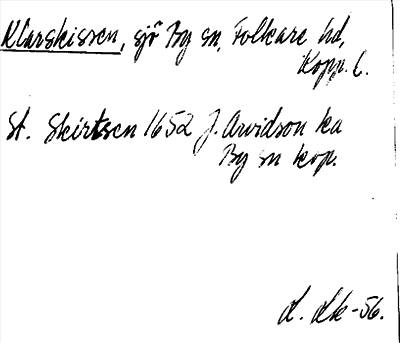 Klarskissen, sjö By sn, Folkare hd,
Kopp. l.
St. Skirtsen 1652 J. Arvidson ka
By sn kop.
L. Lk -56.